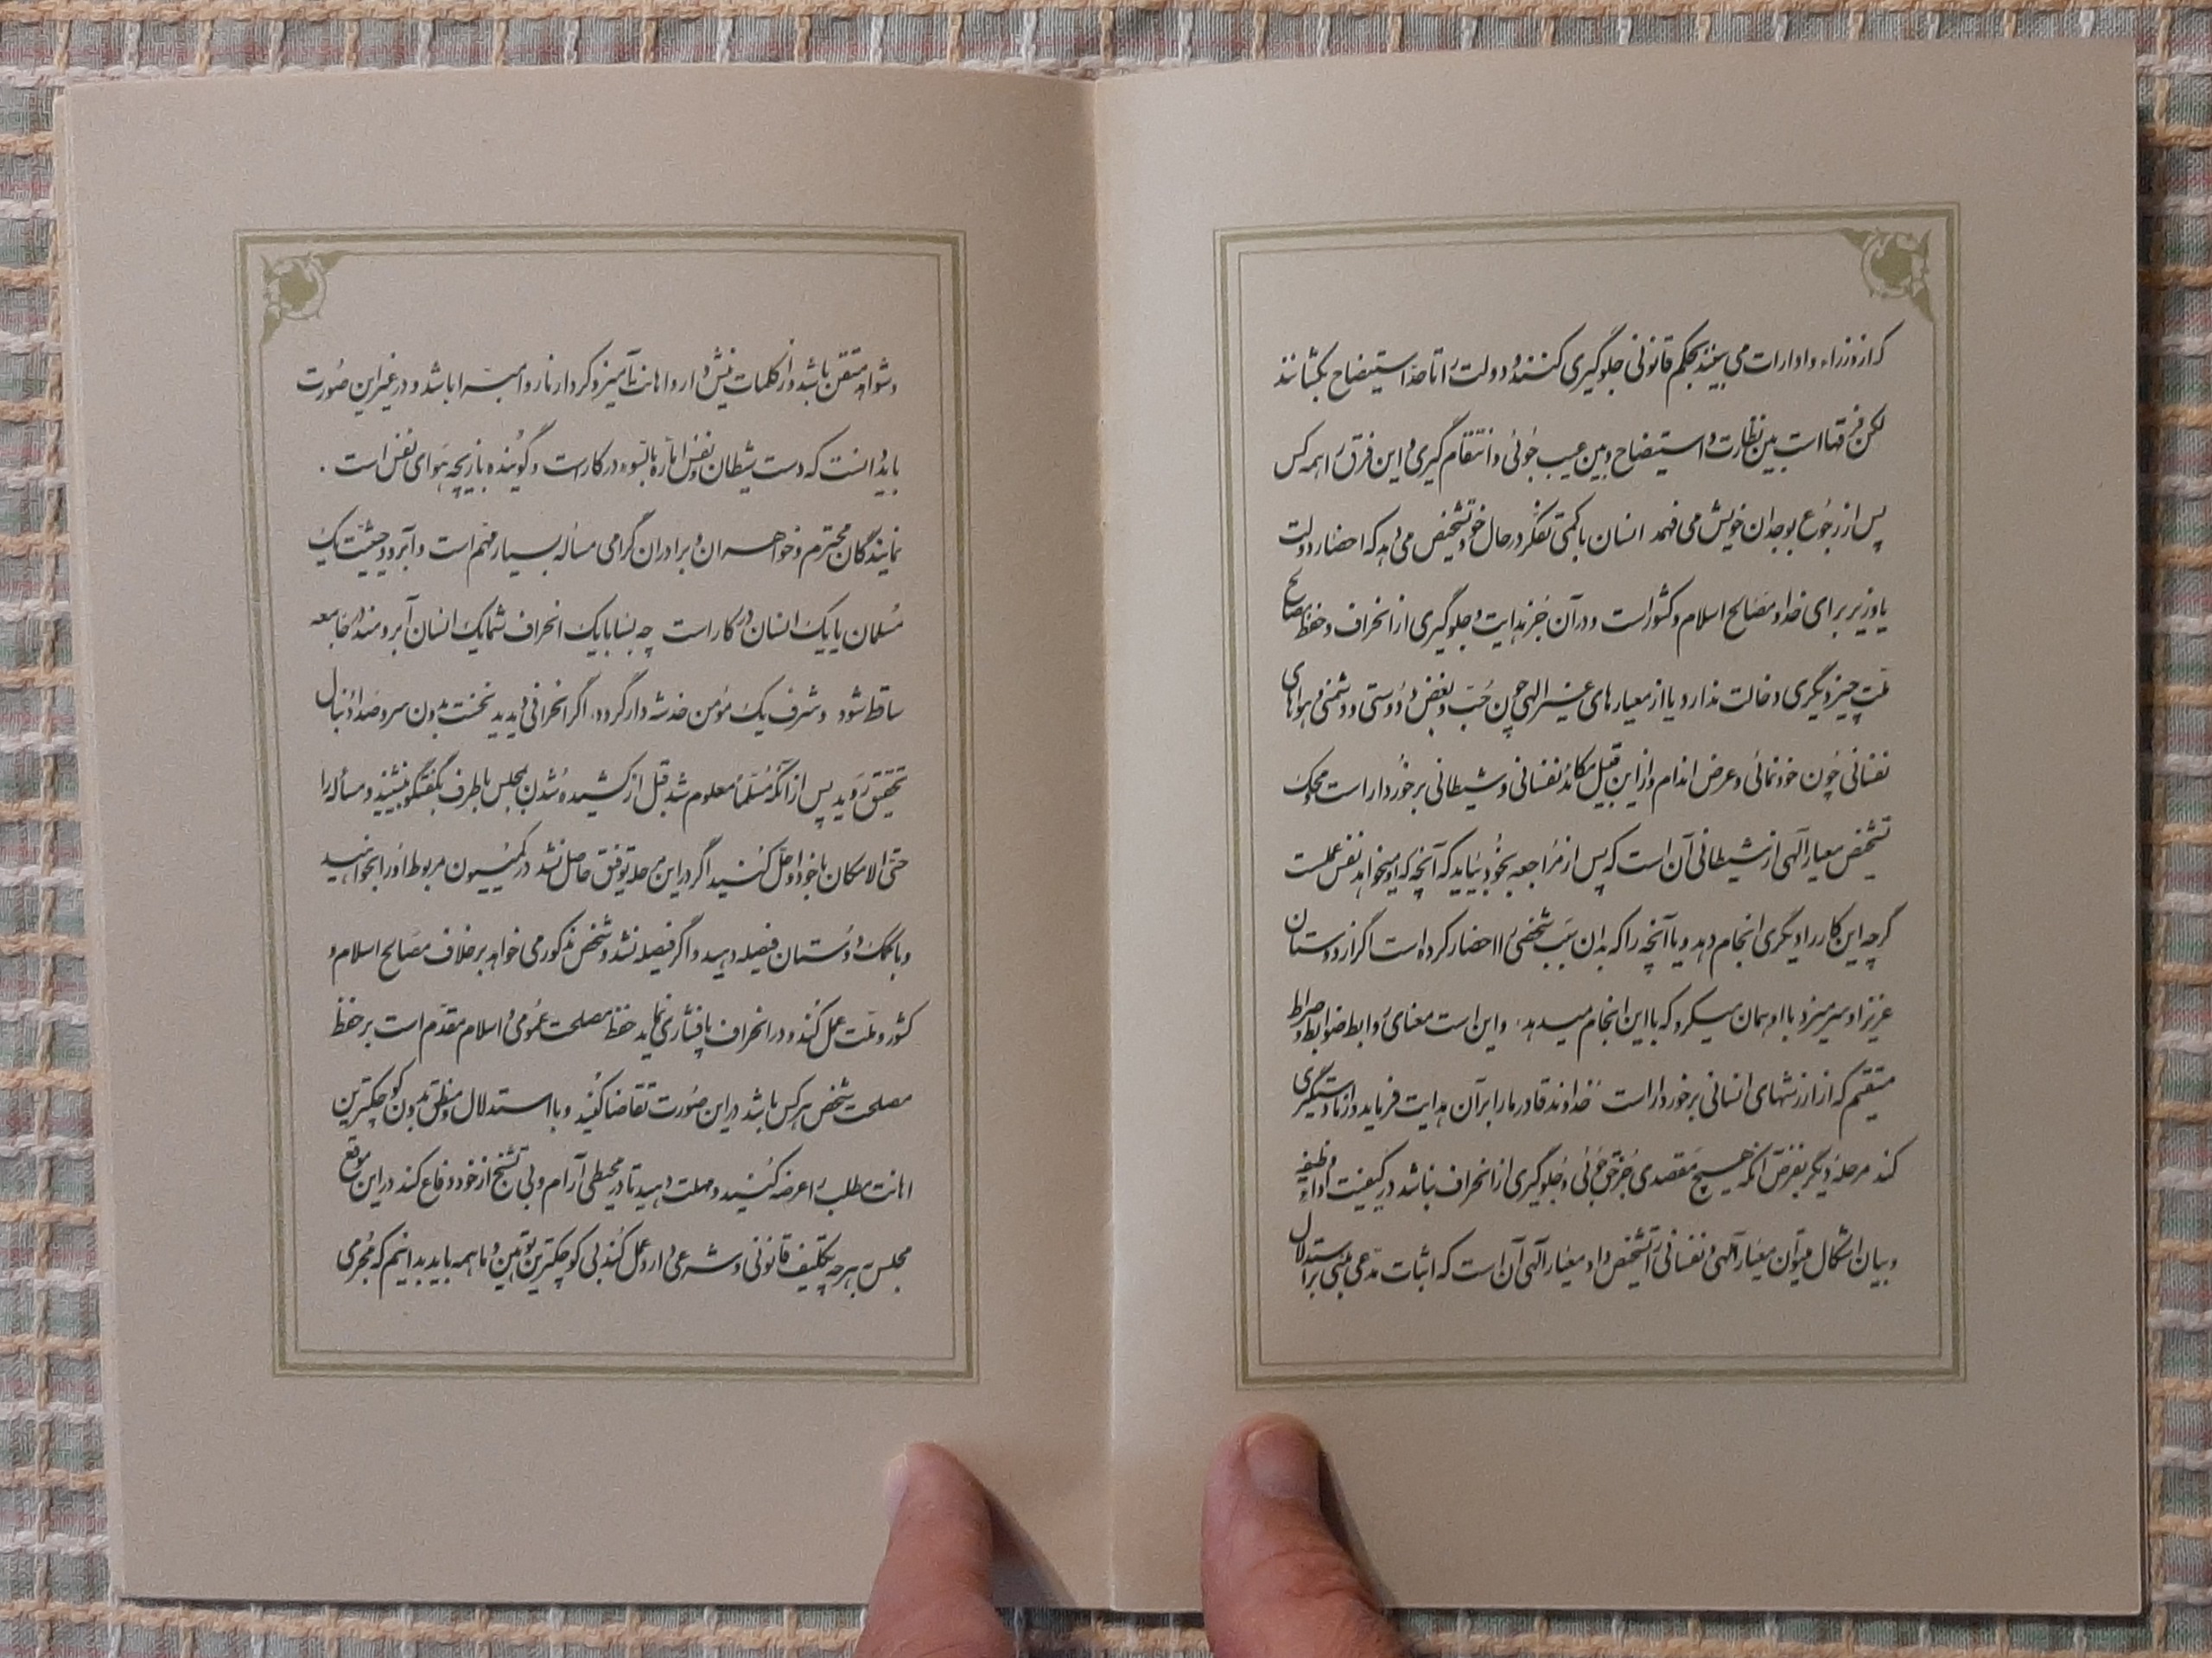 که از وزراء و ادارات می بینند بحکم قانونی جلوگیری کنند و دولت را تا حدّ استیضاح بکشانند
لکن فرقهااست بین نظارت و استیضاح و بین عیب جوئی و انتقام گیری و این فرق را همه کس
پس از رجوع بوجدان خویش می فهمد انسان با کمی تفکر در حال خود تشخیص می دهد که احضار دولت
یا وزیر برای خدا و مصالح اسلام و کشور است و در آن جز هدایت و جلوگیری از انحراف و حفظ مصالح
ملت چیز دیگری دخالت ندارد یا از معیارهای غیر الهی چون حُبّ و بغض و دوستی و دشمنی و هواهای
نفسانی چون خودنمائی و عرض اندام و از این قبیل مکائد نفسانی و شیطانی برخوردار است و محک
تشخیص معیار الهی از شیطانی آن است که پس از مراجعه بخود بیابد که آنچه که او میخواهد نفس عمل است
گرچه این کار را دیگری انجام دهد و یا آنچه را که بدان سبب شخصی را احضار کرده است اگر از دوستان
عزیز او سر میزد با او همان میکرد که با این انجام میدهد، و این است معنای روابط ضوابط و صراط
مستقیم که از ارزشهای انسانی برخوردار است خداوند قادر ما را بر آن هدایت فرماید و از ما دستگیری
کند مرحله دیگر بفرض آنکه هیچ مقصدی جز حق جوئی و جلوگیری از انحراف نباشد در کیفیت اداء وظیفه
و بیان اشکال میتوان معیار الهی و نفسانی را تشخیص داد معیار الهی آن است که اثبات مدّعی مبتنی بر استدلال
و شواهد متقن باشد و از کلمات نیش دار و اهانت آمیز و کردار ناروا مبرّا باشد و در غیر این صورت
باید دانست که دست شیطان و نفس امّاره بالسّوء در کار است و گوینده بازیچه هوای نفس است .
نمایندگان محترم و خواهران و برادران گرامی مسأله بسیار مهم است و آبرو و حیثیّت یک
مسلمان یا یک انسان در کار است چه بسا با یک انحراف شما یک انسان آبرومند در جامعه
ساقط شود و شرف یک مؤمن خدشه دار گردد، اگر انحرافی دیدید نخست بدون سر و صدا دنبال
تحقیق روید پس از آنکه مُسلّماً معلوم شد قبل از کشیده شدن بمجلس با طرف بگفتگو بنشینید و مسأله را
حتّی الامکان با خود او حلّ کنید اگر در این مرحله توفیق حاصل نشد در کمیسیون مربوط او را بخواهید
و با کمک دوستان فیصله دهید و اگر فیصله نشد و شخص مذکور می خواهد بر خلاف مصالح اسلام و
کشور و ملّت عمل کند و در انحراف پافشاری نماید حفظ مصلحت عمومی و اسلام مقدّم است بر حفظ
مصلحت شخص هر کس باشد در این صورت تقاضا کنید و با استدلال و منطق بدون کوچکترین
اهانت مطلب را عرضه کنید و مهلت دهید تا در محیطی آرام و بی تشنج از خود دفاع کند در این موقع
مجلس بهر چه تکلیف قانونی و شرعی دارد عمل کند بی کوچکترین توهین و ما همه باید بدانیم که مُجرمی